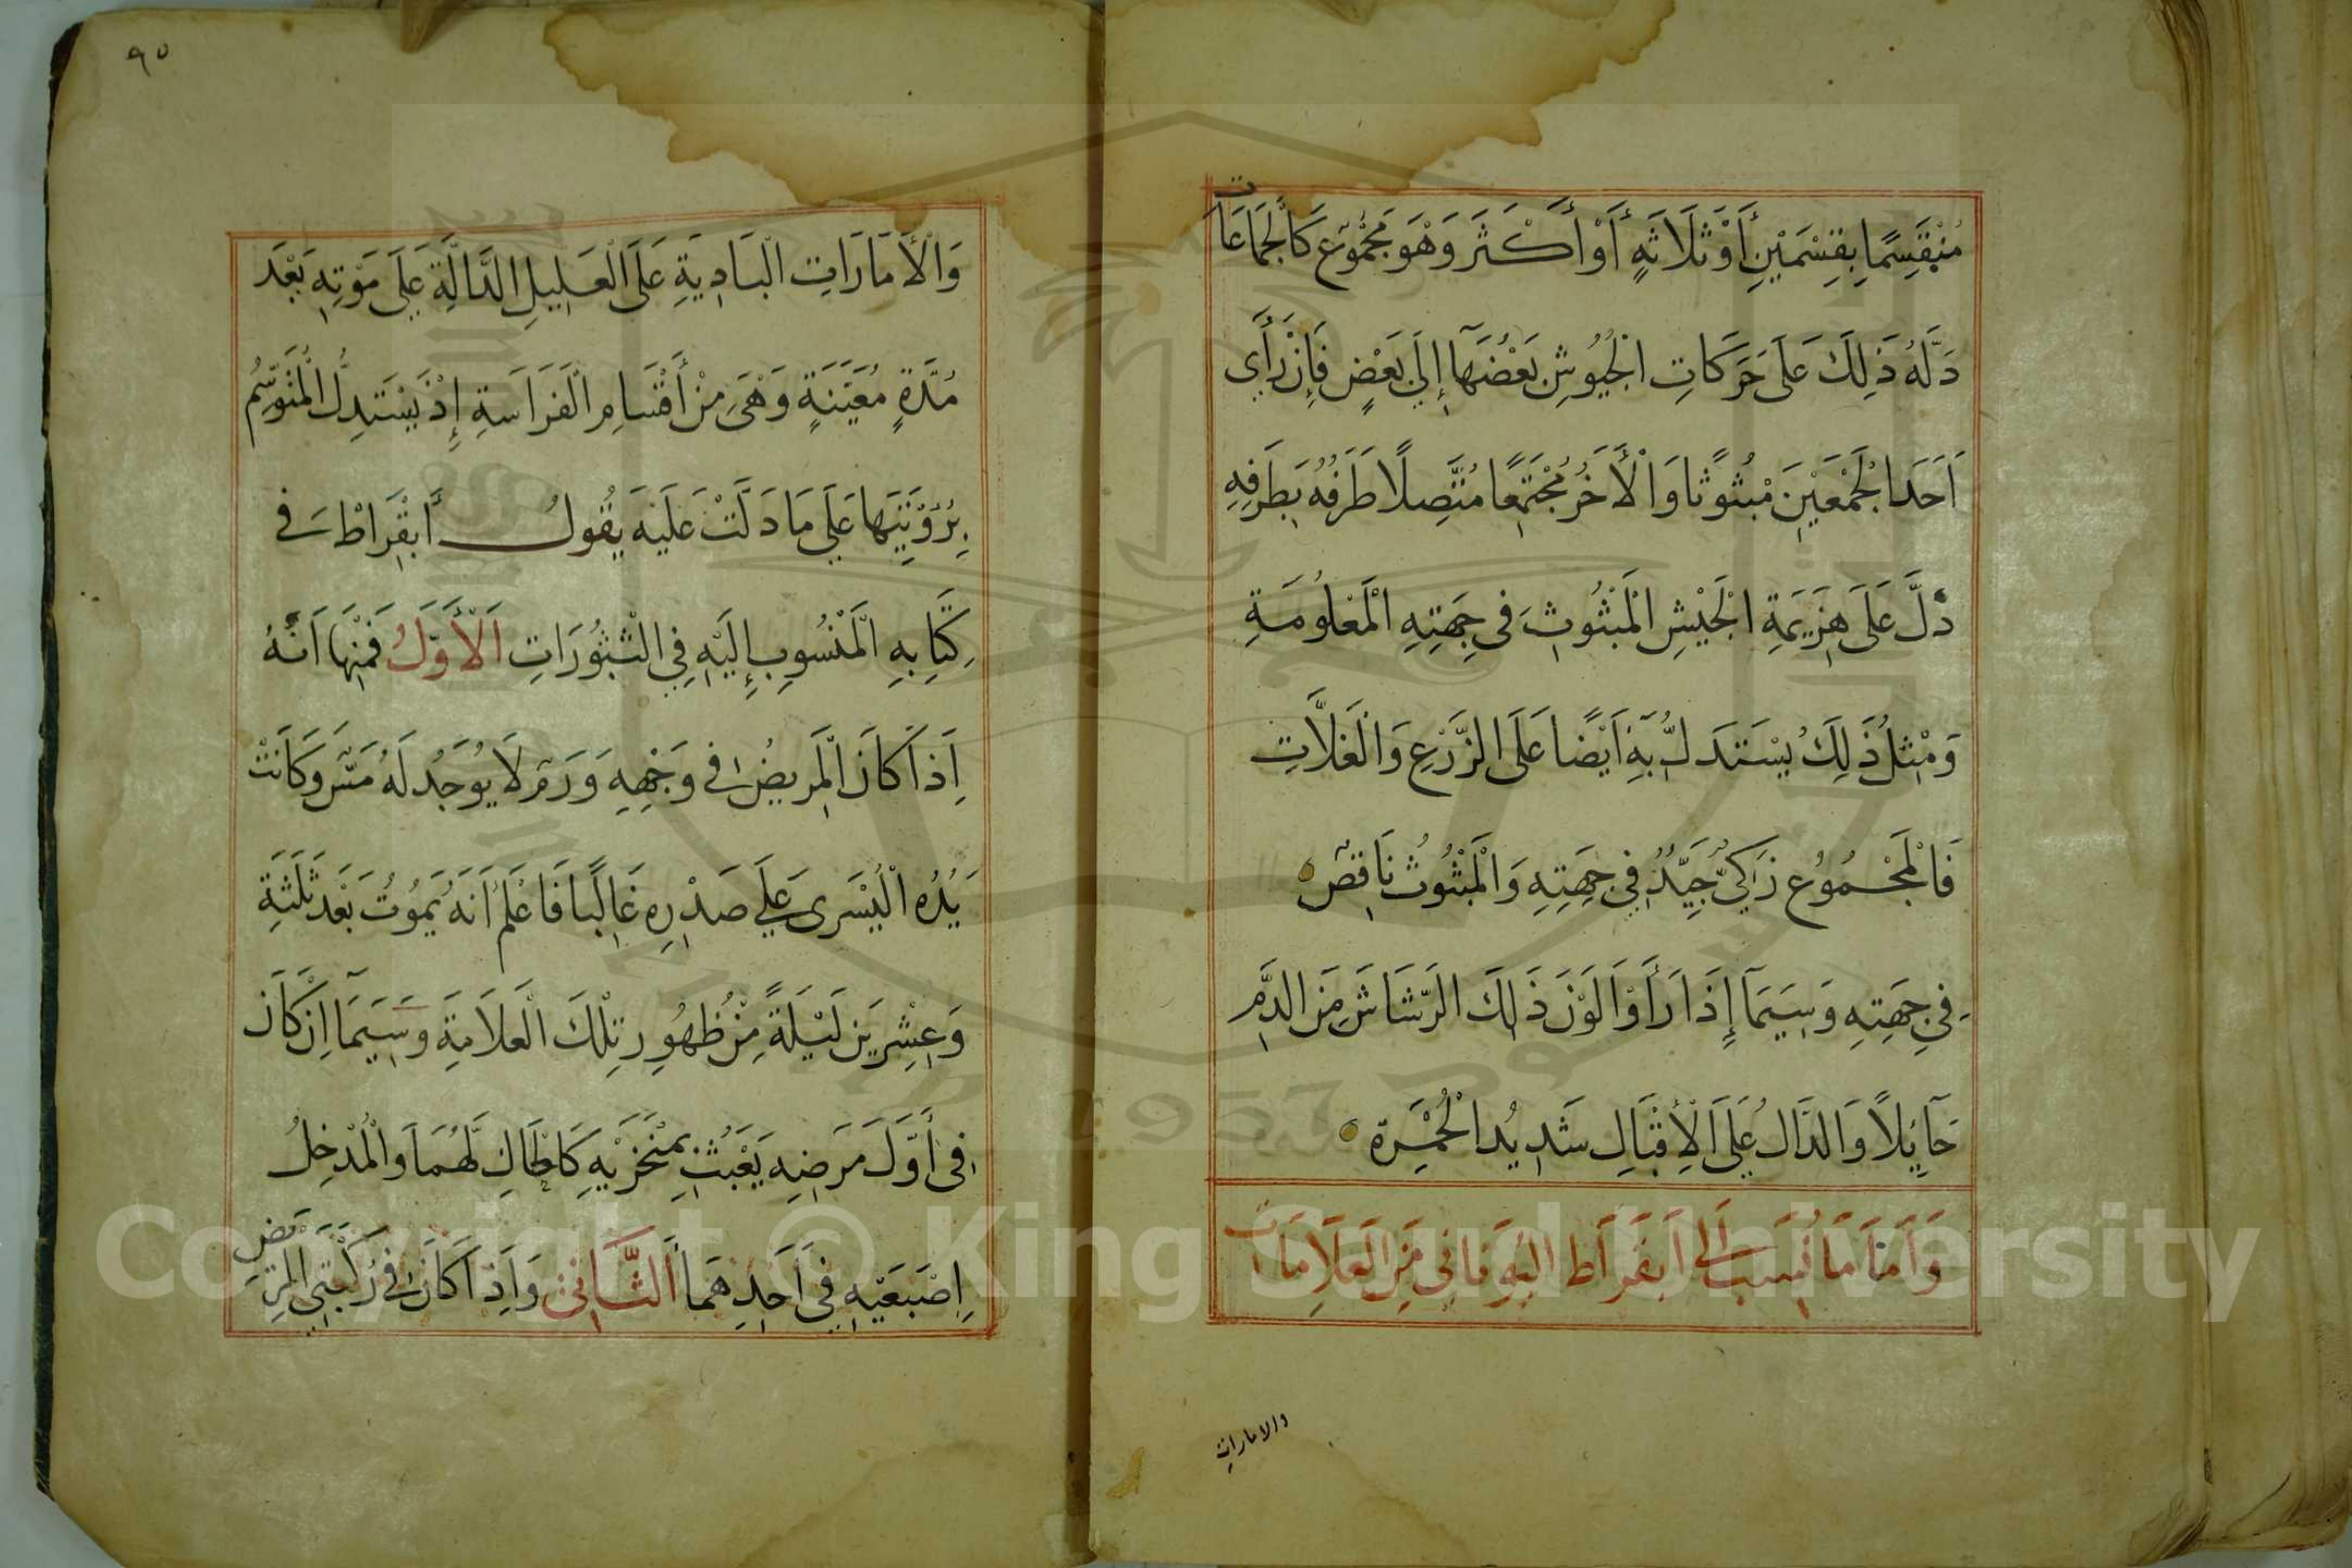 مُنْقَسِمًا بِقِسْمَيْنِ أَوْ ثَلَاثَةٍ أَوْ أَكْثَرَ وَهْوَ مَجْمُوْع كَالْجَمَاعَات
دَلَّهُ ذَلِكَ عَلَى حَرَكَاتِ الْجُيُوْشِ بَعْضُهَا إِلَى بَعْضٍ فَإِنْ رَأَى
اَحَدَ الْجَمْعَيْنِ مَبْثُوثًا وَالْأَخَرُ مُجْتَمِعًا مُتَّصِلًا طَرَفُهُ بِطَرَفِهِ
دَلَّ عَلَى هَزِيمَةِ الْجَيْشِ الْمَبْثُوثِ فِى جِهَتِهِ الْمَعْلُومَةِ
وَمِثْلُ ذَلِكَ يُسْتَدَلُّ بِهِ اَيْضًا عَلَى الزَّرْعِ وَالْغَلَّاتِ
فَالْمَجْمُوْع زَاكِيٌّ جَيِّدٌ فِي جِهَتِهِ وَالْمَبْثُوثُ نَاقِصٌ
فِي جِهَتِهِ وَسِيَمَا إِذَا رَأَوْا لَوْنَ ذَلِكَ الرَّشَاشَ مِنَ الدَّمِ
حَآئِلًا وَالدَّالُ عَلَى الْأِقْبَالِ شَدِيدُ الْحُمْرَة
وَاَمَّا مَا نُسِبَ اِلَى اَبقَرَاط الْيُوْنَانِي مِنَ الْعَلَامَات
والامارات
٩٥
وَالْأَمَارَاتِ الْبَادِيَةِ عَلَى الْعَلِيلِ الدَّالَّةِ عَلَى مَوْتِهِ بَعْدَ
مُدَّةٍ مُعَيَّنَةٍ وَهْىَ مِنْ أَقْسَامِ الْفَرَاسَةِ إِذْ يَسْتَدِلُّ الْمُتَوَسِّمُ
بِرُؤْيَتِهَا عَلَى مَا دَلَّتْ عَلَيْهِ يَقُولُ أَبْقَرَاطْ فى
كِتَابِهِ الْمَنْسُوبِ إِلَيْهِ فِي الْبُثُوْرَاتِ اَلْأَوَّلُ فَمِنْهَا اَنَّهُ
اِذَا كَانَ الْمَرِيضُ فى وَجْهِهِ وَرَم لَا يُوْجَدُ لَهُ مَسّ وَكَانَتْ
يَدُهُ الْيُسْرَى عَلَى صَدْرِهِ غَالِبًا فَاعْلَمْ اَنَّهُ يَمُوْتُ بَعْدَ ثَلَثَةِ
وَعِشْرِيَن لَيْلَةً مِنْ ظُهُوِرِ تِلْكَ الْعَلَامَةِ وَسِيَمَا اِنْ كَانَ
فِى أَوَّلِ مَرَضِهِ يَعْبَثُ بِمنْخَرَيْهِ كَاظَاكِ لَهُمَا وَالْمُدْخِلُ
اِصْبَعَيْهِ فِى اَحَدِهَمَا اَلثَّانِى وَاِذَا كَانَ فِى رُكْبَتَىِ الْمَرِيْض